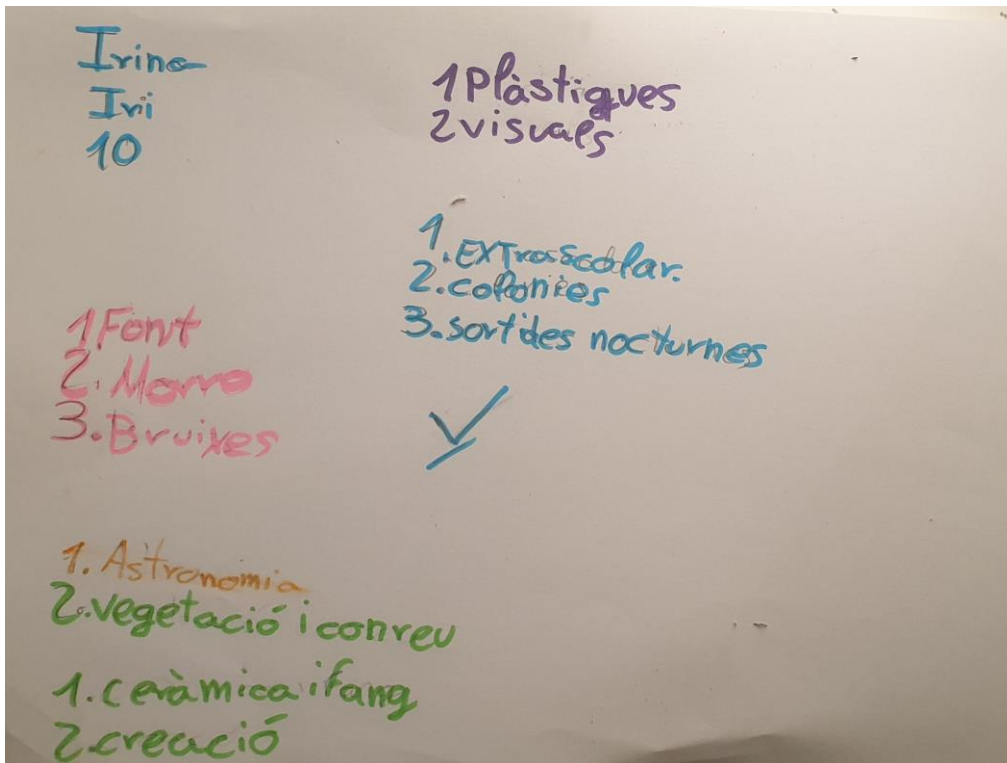 Irina
Irii
10
1 Plàstiques
2 visuals
1. EXTraScolar.
2. colonies
3. sortides nocturnes
1 Font
2. Morro
3. Bruixes
1. Astronomia
2. vegetació i conreu
1. ceràmica i fang
2. creació